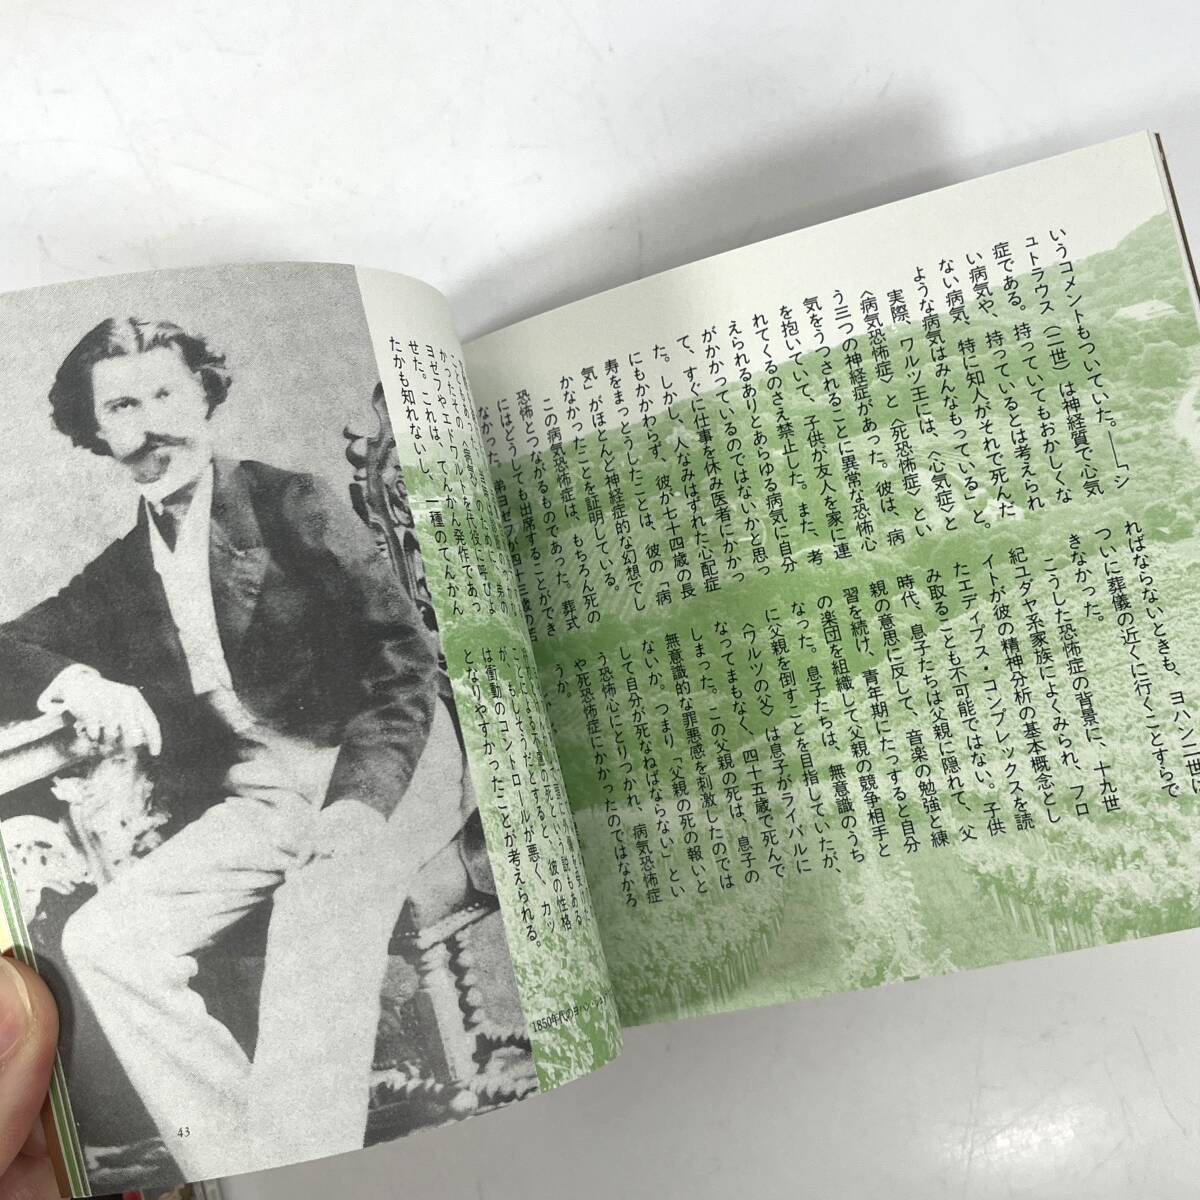 いうコメントもついていた。――「シ
ュトラウス（二世）は神経質で心気
症である。持っていてもおかしくな
い病気や、持っているとは考えられ
ない病気、特に知人がそれで死んだ
ような病気はみんなもっている」と。
実際、ワルツ王には、〈心気症〉と
〈病気恐怖症〉と〈死恐怖症〉とい
う三つの神経症があった。彼は、病
気をうつされることに異常な恐怖心
を抱いていて、子供が友人を家に連
れてくるのさえ禁止した。また、考
えられるありとあらゆる病気に自分
がかかっているのではないかと思っ
て、すぐに仕事を休み医者にかかっ
た。しかし、人なみはずれた心配症
にもかかわらず、彼が七十四歳の長
寿をまっとうしたことは、彼の「病
気」がほとんど神経症的な幻想でし
かなかったことを証明している。
この病気恐怖症は、もちろん死の
恐怖とつながるものであった。葬式
にはどうしても出席することができ
なかった。弟ヨゼフが四十三歳の若
ればならないときも、ヨハン二世は
ついに葬儀の近くに行くことすらで
きなかった。
こうした恐怖症の背景に、十九世
紀ユダヤ系家族によくみられ、フロ
イトが彼の精神分析の基本概念とし
たエディプス・コンプレックスを読
み取ることも不可能ではない。子供
時代、息子たちは父親に隠れて、父
親の意思に反して、音楽の勉強と練
習を続け、青年期にたっすると自分
の楽団を組織して父親の競争相手と
なった。息子たちは、無意識のうち
に父親を倒すことを目指していたが、
〈ワルツの父〉は息子がライバルに
なってまもなく、四十五歳で死んで
しまった。この父親の死は、息子の
無意識的な罪悪感を刺激したのでは
ないか。つまり、「父親の死の報いと
して自分が死なねばならない」とい
う恐怖心にとりつかれ、病気恐怖症
や死恐怖症にかかったのではなかろ
うか。
かったその〈病気〉を代役に呼びよ
せた。これは、てんかん発作であっ
たかも知れないし、一種のてんかん
が、もしそうだとすると、彼の性格
は衝動のコントロールが悪く、カッ
となりやすかったことが考えられる。
1850年代のヨハン
43